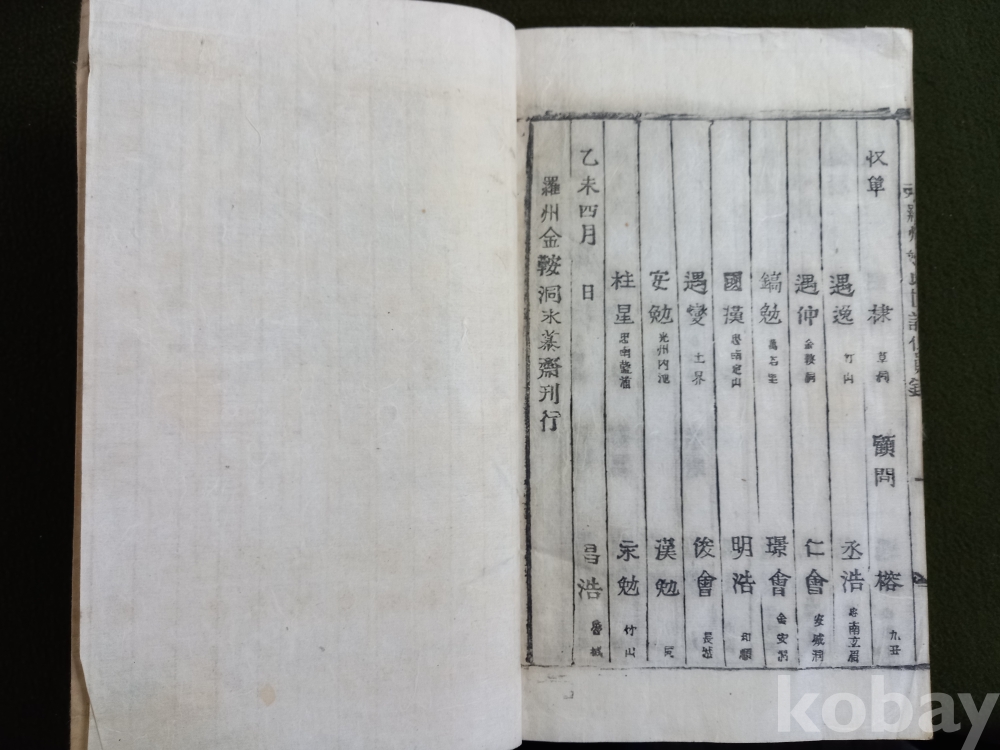 收單 棣 顧問 榕 九丑
遇逸 竹山 丞浩 南立眉
遇仲 金鞍洞 仁會 安城洞
鎬勉 璟會 金安洞
國漢 明浩
遇變 土界 俊會 長城
安勉 光州內池 漢勉 同
柱星 永勉 竹山
乙未四月 日 昌浩
羅州金鞍洞永慕齋刊行
kobay